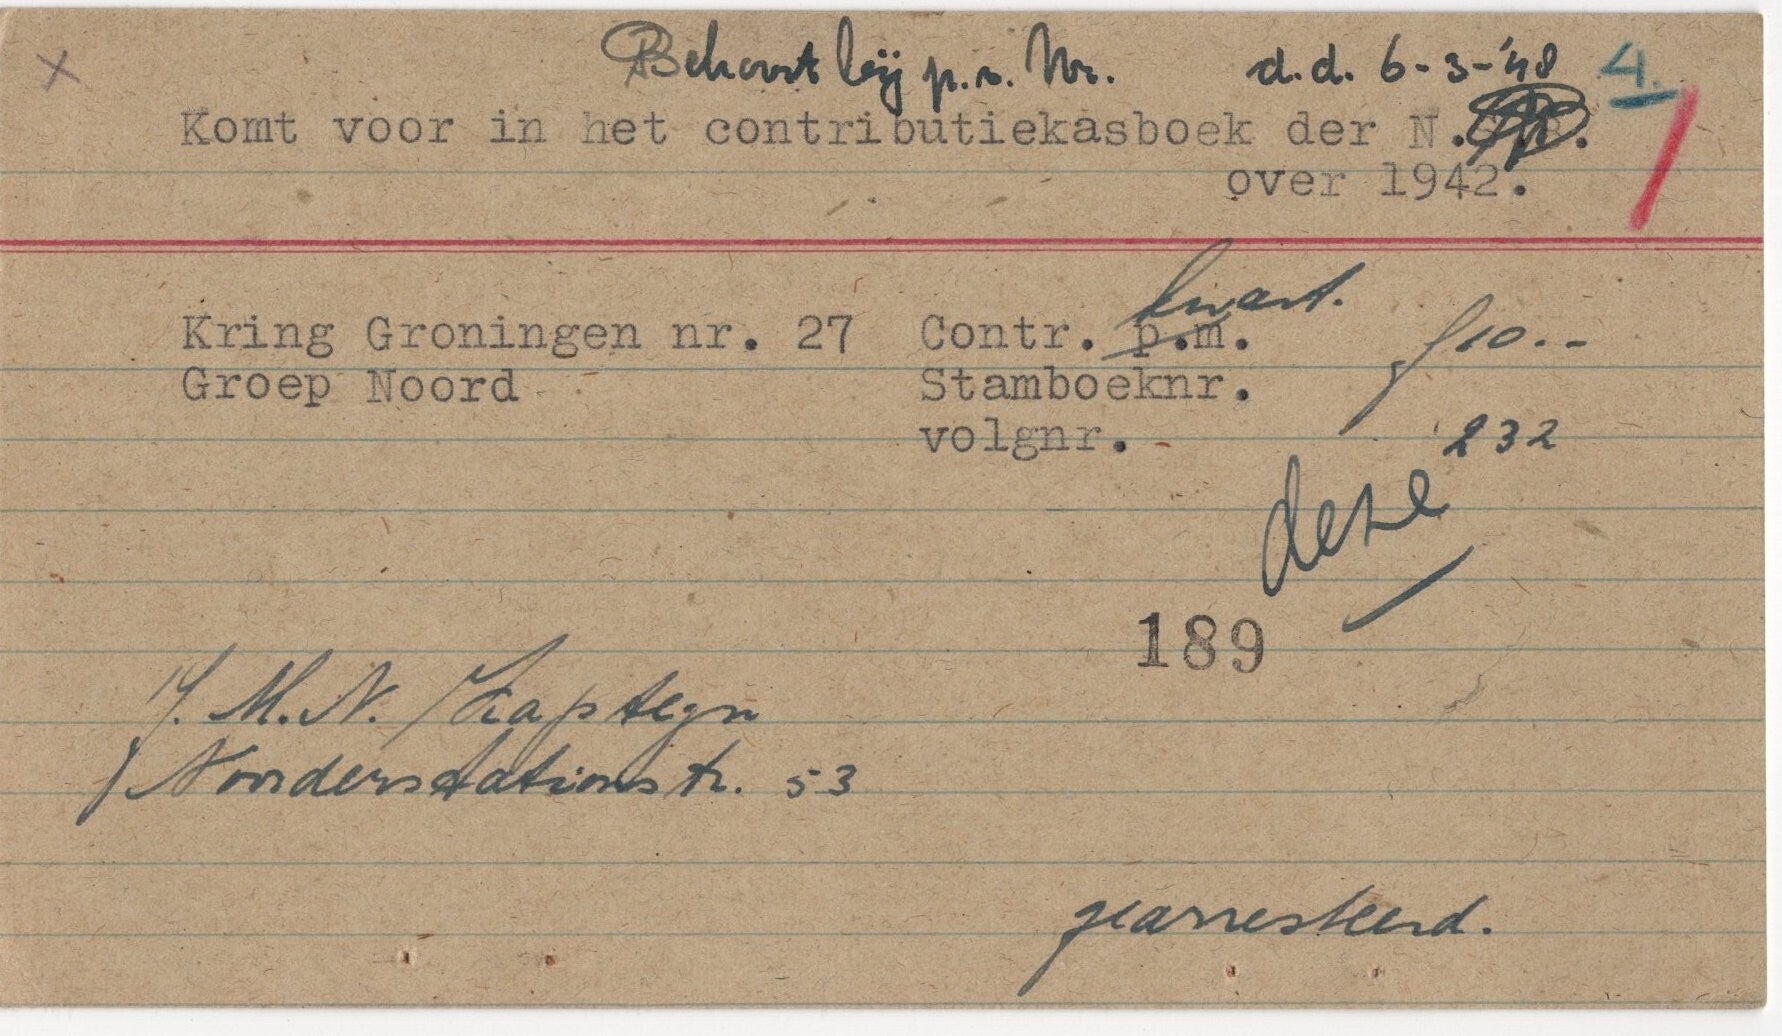 x
Behoort bij p.v. Nr. d.d. 6-3-'48 4.
Komt voor in het contributiekasboek der N.S.B.
over 1942.
kwart.
Kring Groningen nr. 27 Contr. p.m. f 10.--
Groep Noord Stamboeknr.
volgnr. 232
deze
189
J. M. N. Kapteyn
Noorderstationstr. 53
gearresteerd.